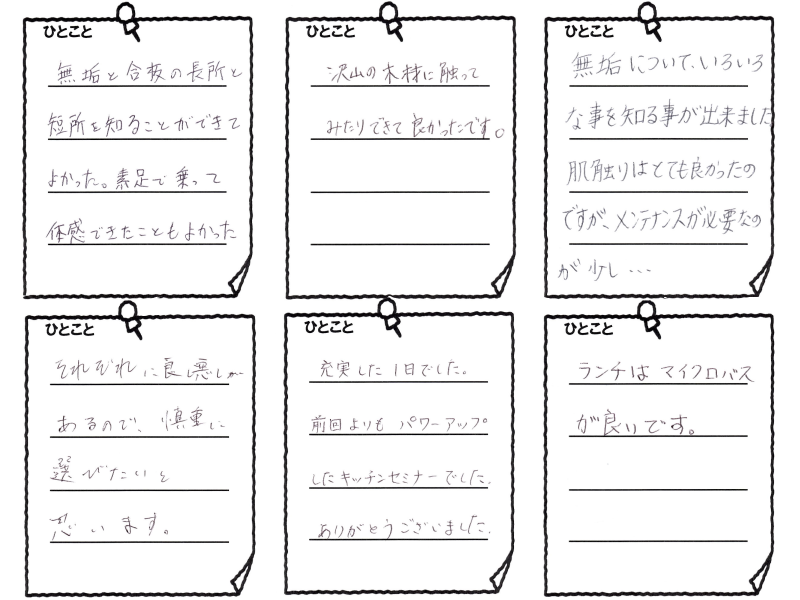 ひとこと
無垢と合板の長所と
短所を知ることができて
よかった。素足で乗って
体感できたこともよかった
ひとこと
沢山の木材に触って
みたりできて良かったです。
ひとこと
無垢について、いろいろ
な事を知る事が出来ました
肌触りはとても良かったの
ですが、メンテナンスが必要なの
が少し...
ひとこと
それぞれに良し悪しが
あるので、慎重に
選びたいと
思います。
ひとこと
充実した1日でした。
前回よりも パワーアップ
したキッチンセミナーでした.
ありがとうございました.
ひとこと
ランチは マイクロバス
が良いです。